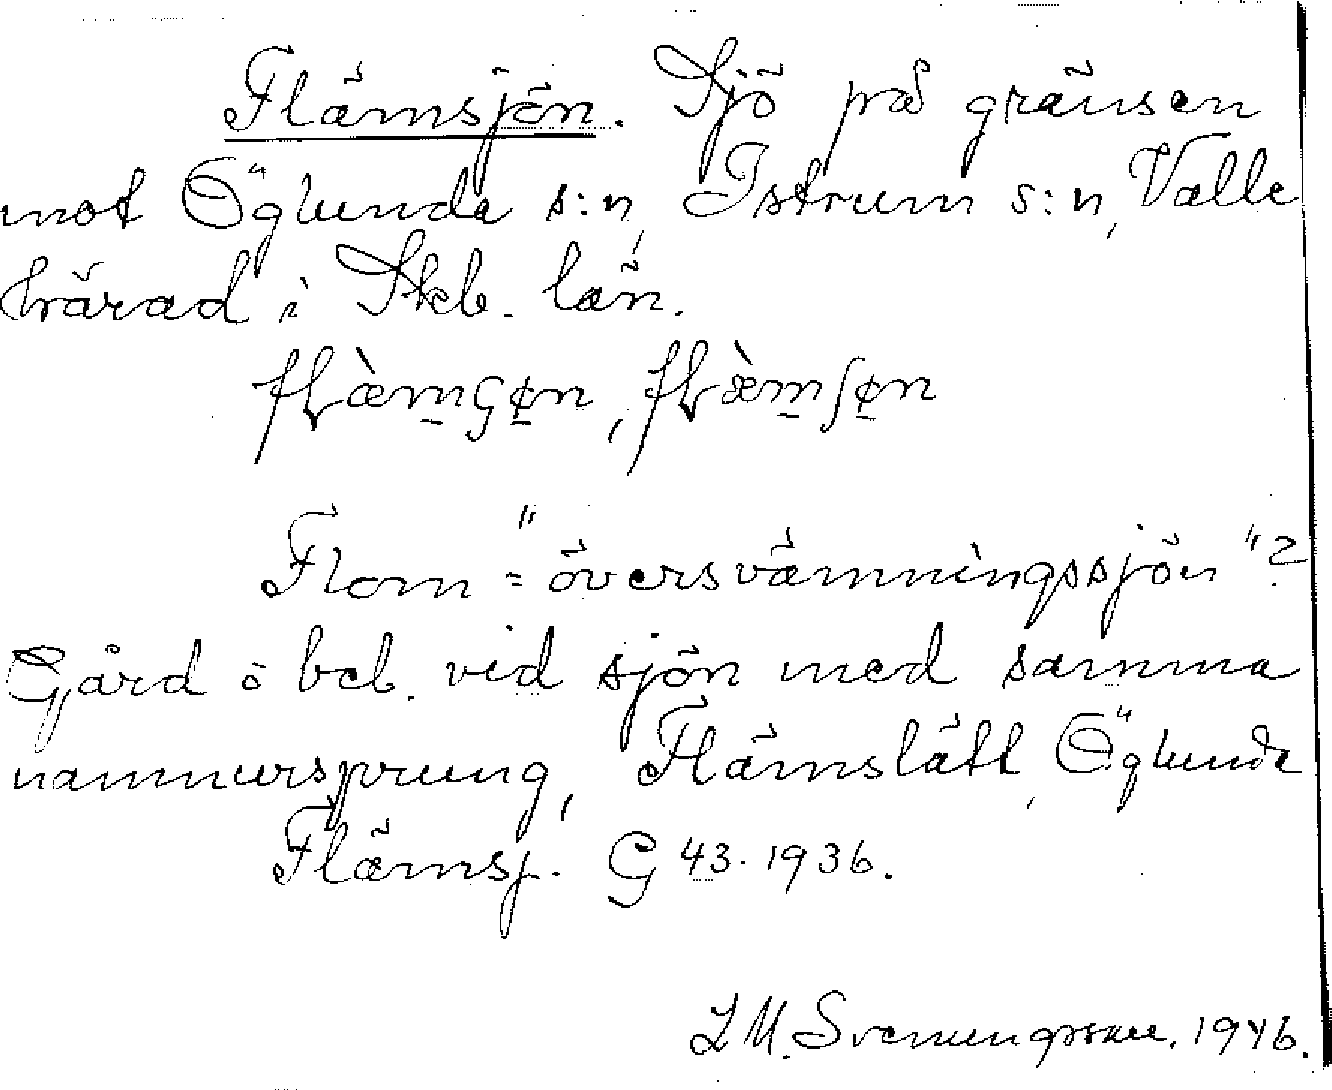 Flämsjön. Sjö på gränsen
mot Öglunda s:n, Istrum s:n, Valle
härad i Skb. län.
flæ̀m̲ʂøn, flæ̀m̲ʃøn
Flom = "översvämningssjön"?
Gård o beb. vid sjön med samma
namnursprung, Flämslätt, Öglunda
Flämsj. G 43. 1936.
L M. Svenungsson. 1946.